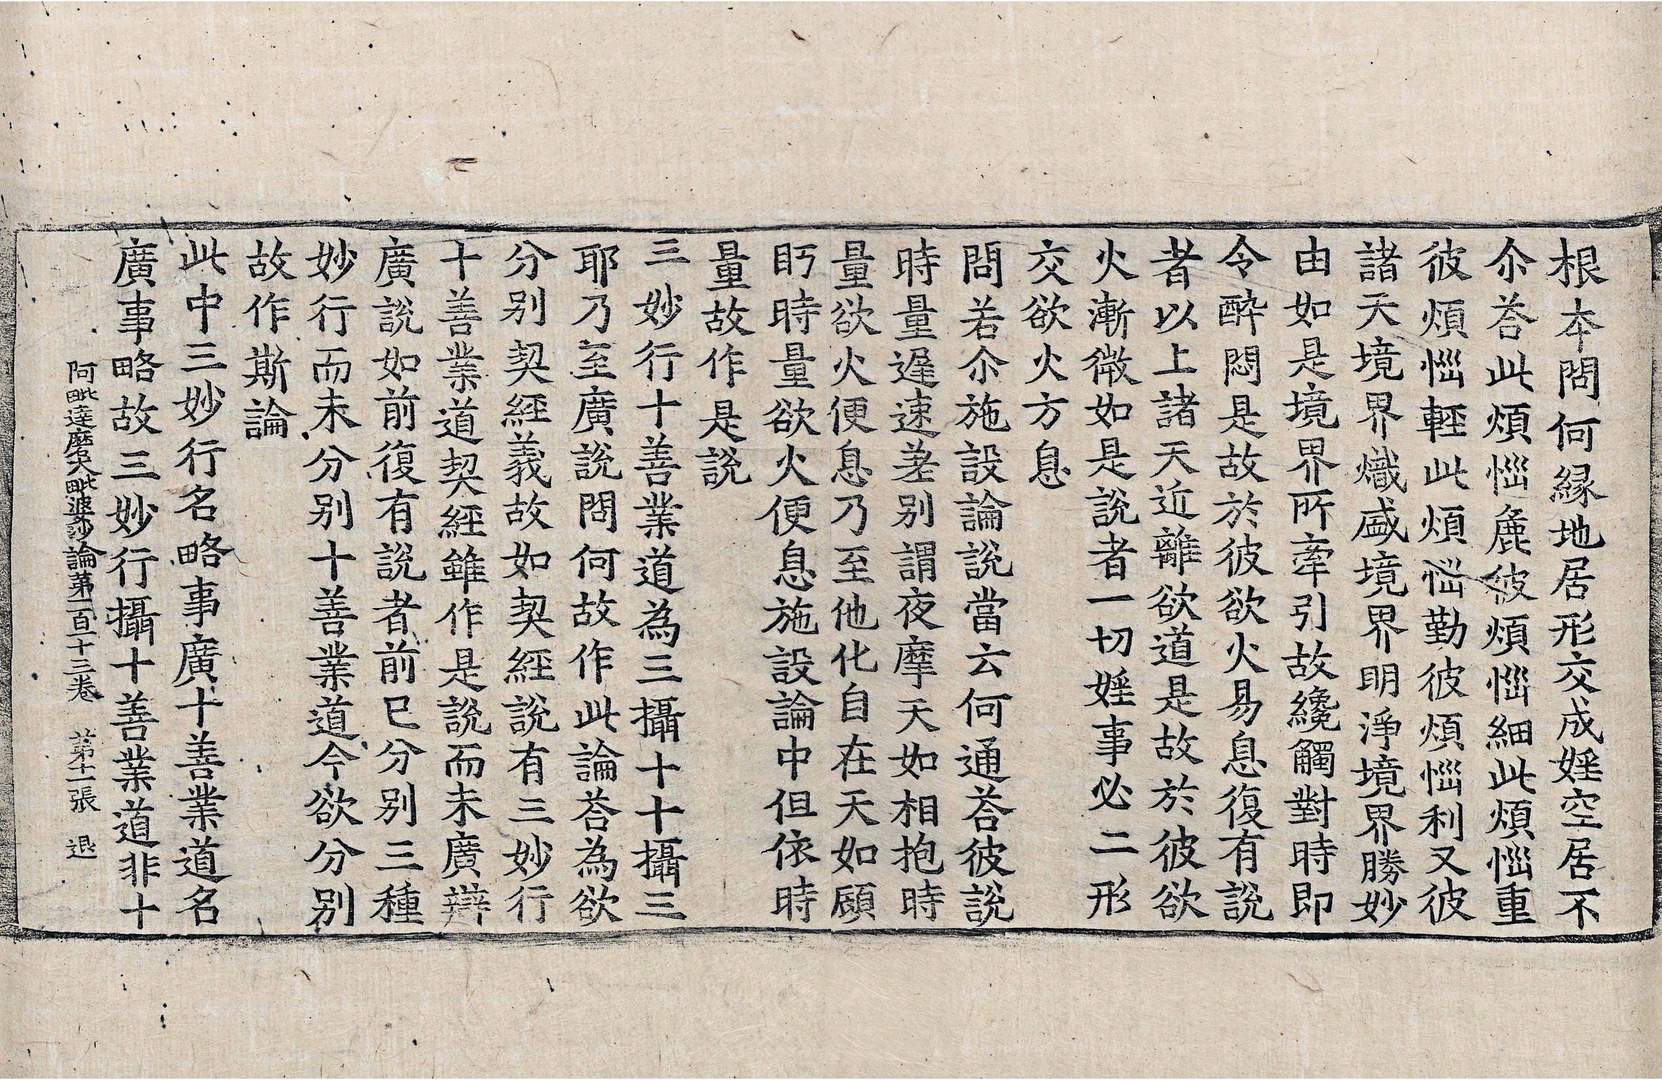 根夲問何縁地居形交成婬空居不
尒荅此煩惱麁彼煩惱細此煩惱重
彼煩惱輕此煩惱勤彼煩惱利又彼
諸天境界熾盛境界明淨境界勝妙
由如是境界所牽引故纔觸對時即
令醉悶是故於彼欲火易息復有說
者以上諸天近離欲道是故於彼欲
火漸微如是說者一切婬事必二形
交欲火方息
問若尒施設論說當云何通荅彼說
時量遲速差別謂夜摩天如相抱時
量欲火便息乃至他化自在天如顧
眄時量欲火便息施設論中但依時
量故作是說
三妙行十善業道為三攝十十攝三
耶乃至廣說問何故作此論荅為欲
分别契經義故如契經說有三妙行
十善業道契經雖作是說而未廣辯
廣說如前復有說者前已分别三種
妙行而未分别十善業道今欲分别
故作斯論
此中三妙行名略事廣十善業道名
廣事略故三妙行攝十善業道非十
阿毗達磨大毗婆沙論苐一百十三卷 苐十一張 退